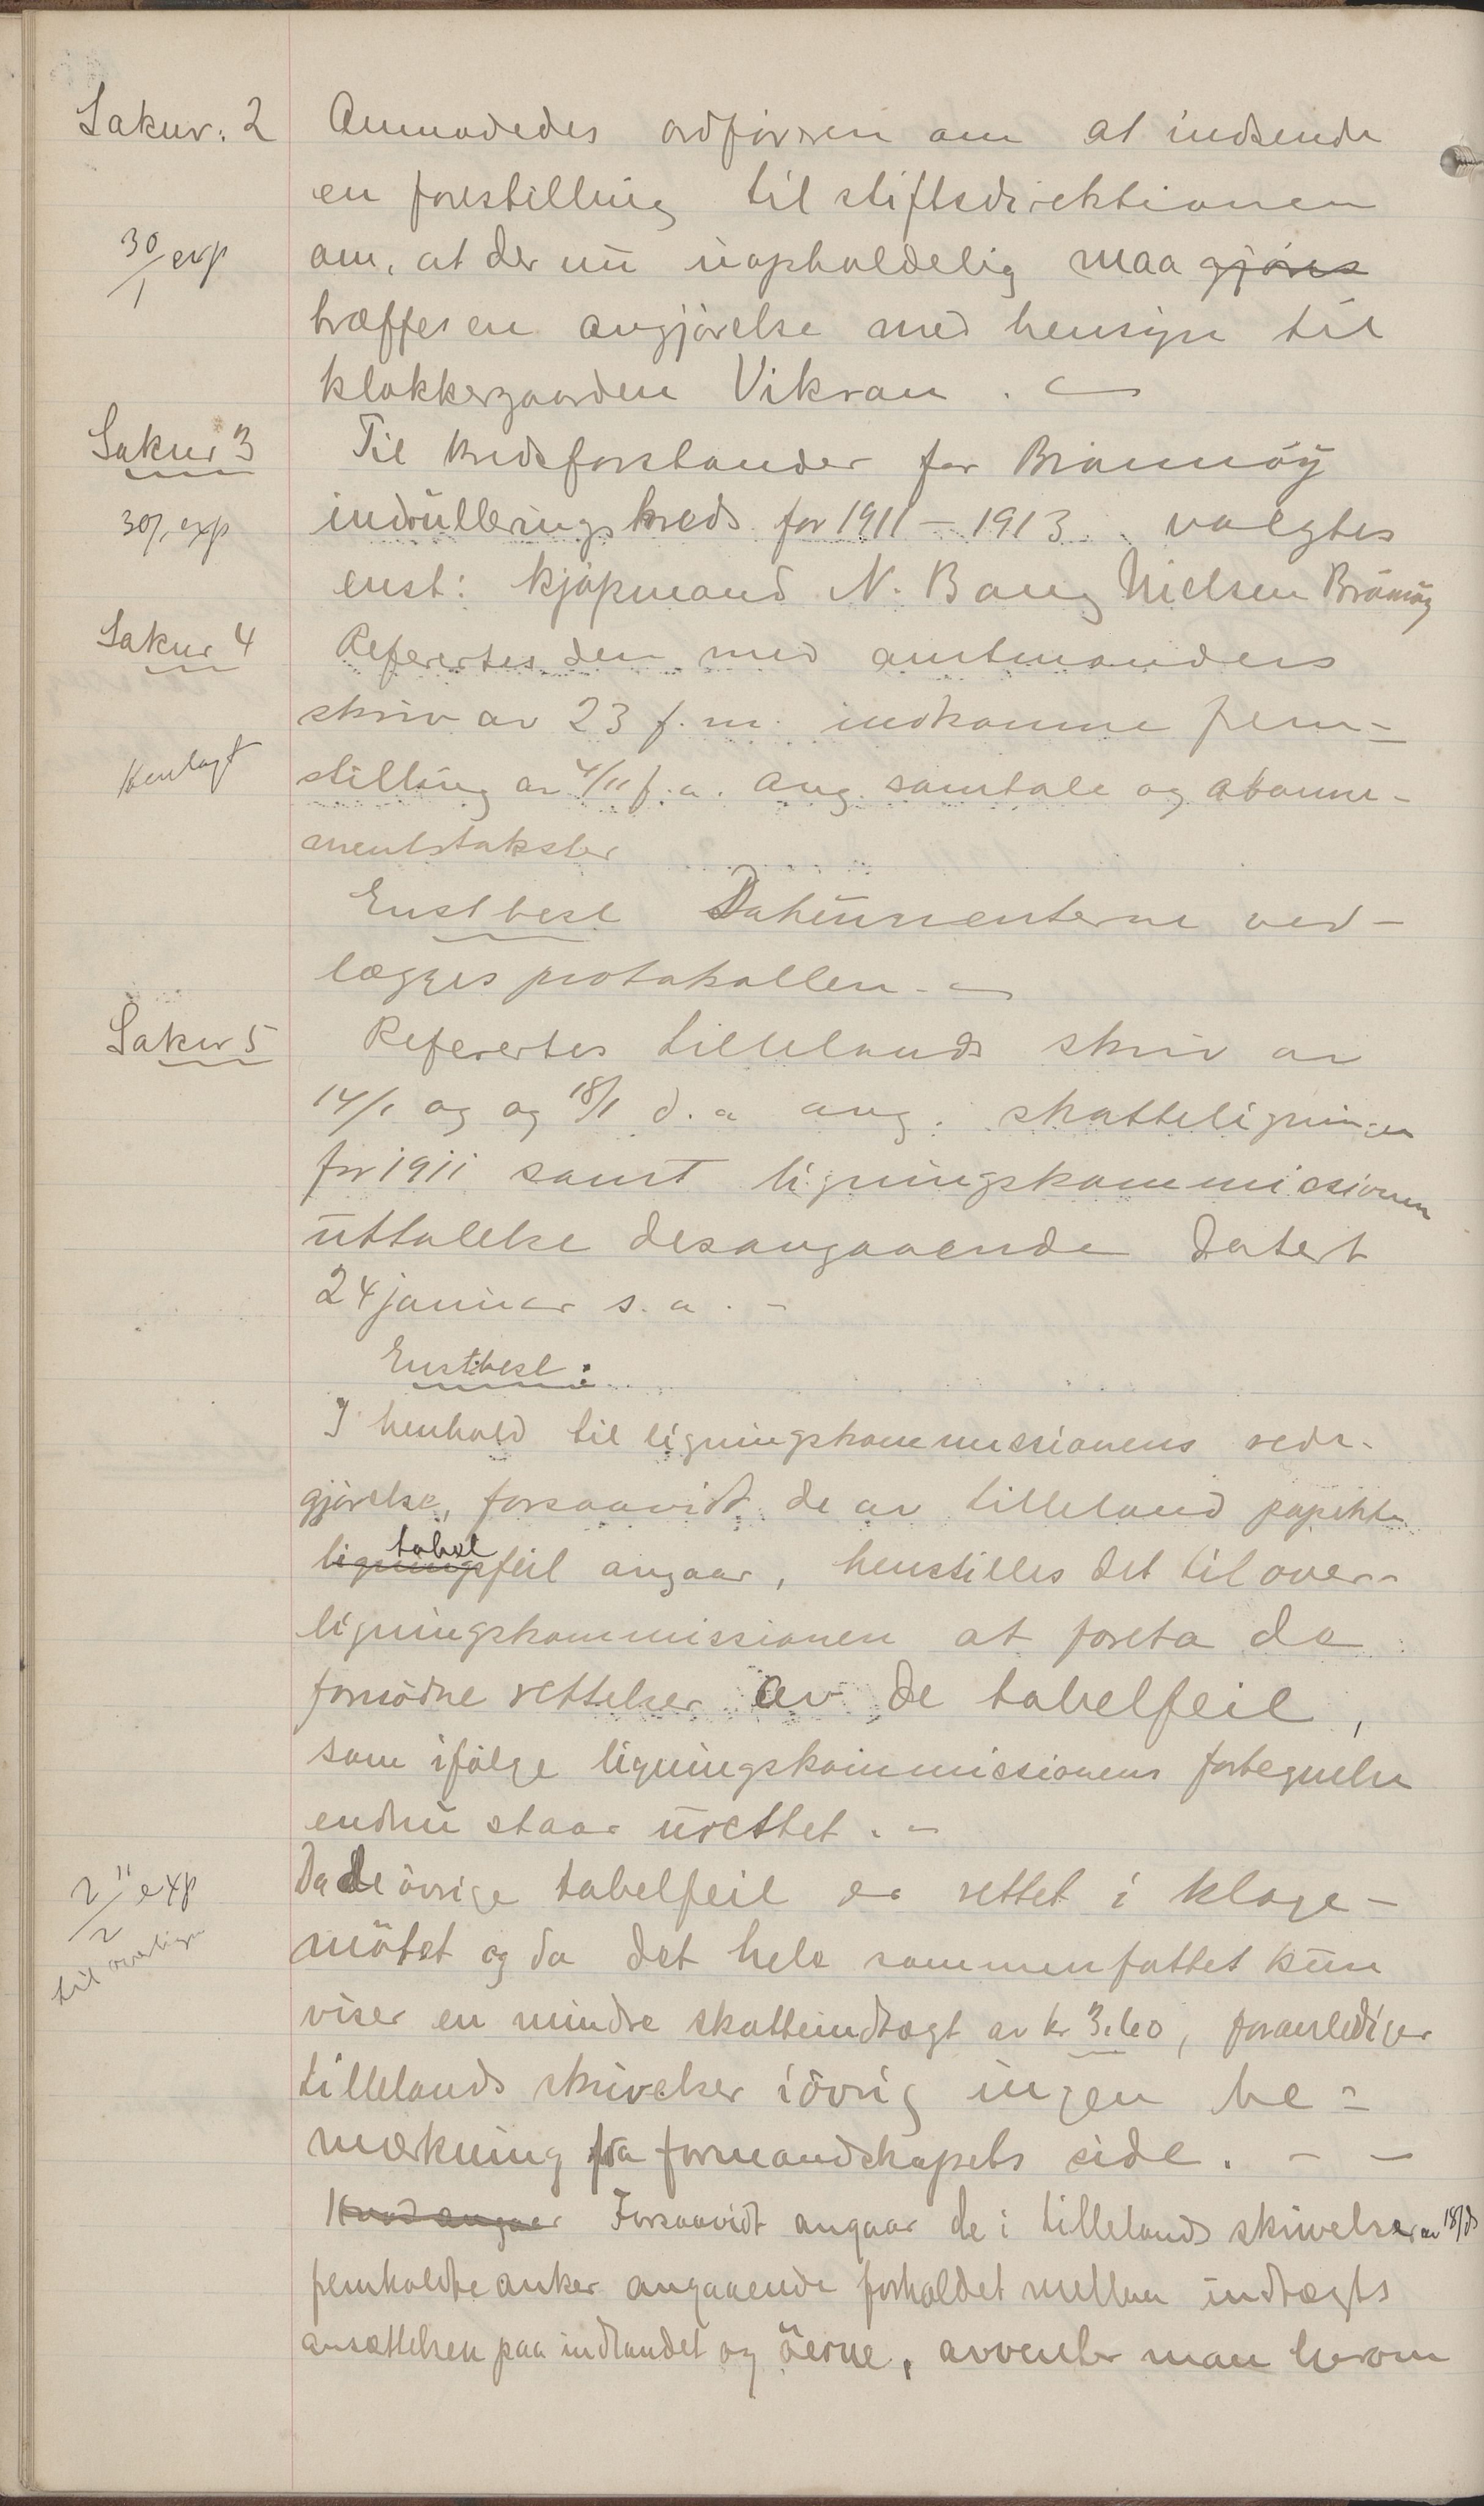 Saknr. 2
Anmodedes ordføreren om at indsende
en forestilling til stiftsdirektionen
30/1 exp
om, at der nu uopholdelig maa gjøres
træffes en avgjørelse med hensyn til
klokkergaarden Vikran. —
Saknr 3
Til kredsforstander for Brønnøy
30/1 exp
indrulleringskreds for 1911 – 1913 valgtes
enst: kjøpmand N. Bang Nielsen Brönnöy
Saknr 4
Referertes den med amtmandens
skriv av 23 f. m. indkomne frem-
Henlagt
stilling av 4/11 f. a. ang. samtale og abonne-
mentstakster
Enst besl Dokumenterne ved-
lægges protokollen. —
Saknr 5
Referertes Lillelands skriv av
14/1 og og 18/1 d. a ang. skatteligningen
for 1911 samt ligningskommissionens
uttalelse desangaaende datert
24 januar s. a. -
Enst. besl:
I henhold til ligningskommissionens rede-
gjørelse, forsaavidt de av Lilleland papekte
tabel
ligningsfeil angaar, henstilles det til over-
ligningskommissionen at foreta de
fornødne rettelser av de tabelfeil,
som ifølge ligningskommissionens fortegnelse
endnu staar urettet. -
2/2 11 exp
til overlign
Da de övrige tabelfeil er rettet i klage-
mötet og da det hele sammenfattet kun
viser en mindre skatteindtægt av kr 3.60, foranlediger
Lillelands skrivelser iövrig ingen be-
mærkning fra formandskapets side. - -
Hvad angaar Forsaavidt angaar de i Lillelands skrivelser av 18/ds
fremholdte anker angaaende forholdet mellem indtægts
ansættelsen paa indlandet og öerne, avventer man herom